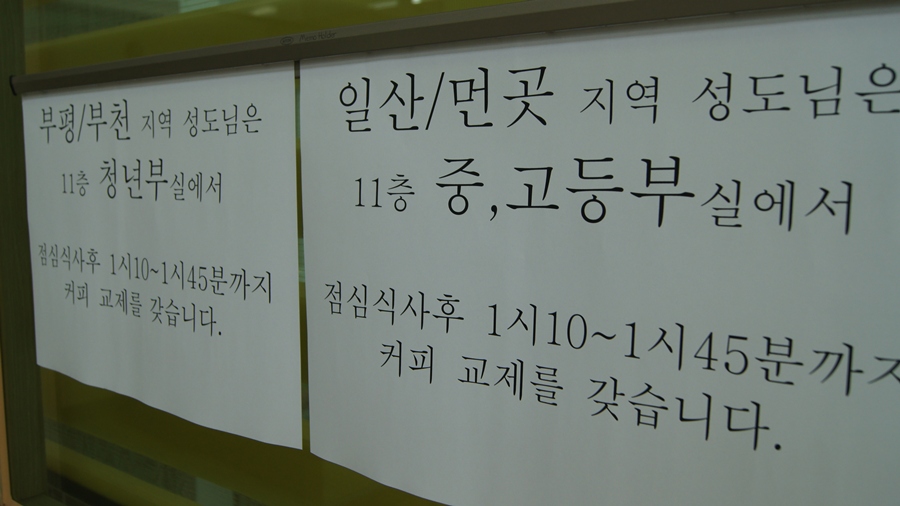 부평/부천 지역 성도님은
11층 청년부실에서
점심식사후 1시10~1시45분까지
커피 교제를 갖습니다.
일산/먼곳 지역 성도님은
11층 중,고등부실에서
점심식사후 1시10~1시45분까지
커피 교제를 갖습니다.